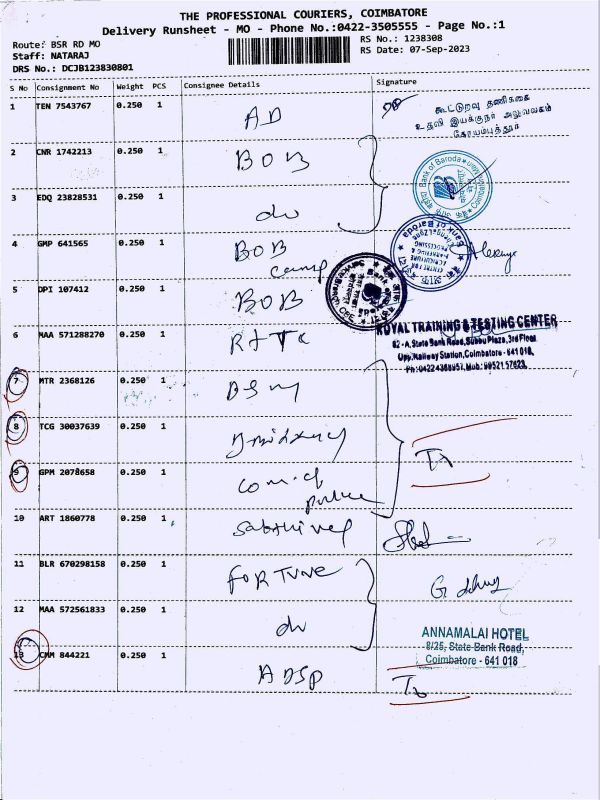 THE PROFESSIONAL COURIERS, COIMBATORE
Delivery Runsheet - MO - Phone No.:0422-3505555 - Page No.:1
Route: BSR RD MO
Staff: NATARAJ
DRS No.: DCJB123830801
RS No.: 1238308
RS Date: 07-Sep-2023
S No Consignment No Weight PCS Consignee Details Signature
1 TEN 7543767 0.250 1 AD
கூட்டுறவு தணிக்கை
உதவி இயக்குநர் அலுவலகம்
கோயம்புத்தூர்
2 CNR 1742213 0.250 1 BOB
Bank of Baroda
3 EDQ 23828531 0.250 1 do
Bank of Baroda
4 GMP 641565 0.250 1 BOB
5 DPI 107412 0.250 1 BOB
6 MAA 571288270 0.250 1 RTTC
ROYAL TRAINING & TESTING CENTER
62-A, State Bank Road, Subbu Plaza, 3rd Floor
Opp. Railway Station, Coimbatore - 641 018,
Ph: 0422 4368957, Mob: 99521 57623,
7 MTR 2368126 0.250 1
8 TCG 30037639 0.250 1
9 GPM 2078658 0.250 1 com. of
police
10 ART 1860778 0.250 1 Sakthivel
11 BLR 670298158 0.250 1 FORTUNE
12 MAA 572561833 0.250 1 do
ANNAMALAI HOTEL
8/25, State Bank Road,
Coimbatore - 641 018
13 CMM 844221 0.250 1 ADSP